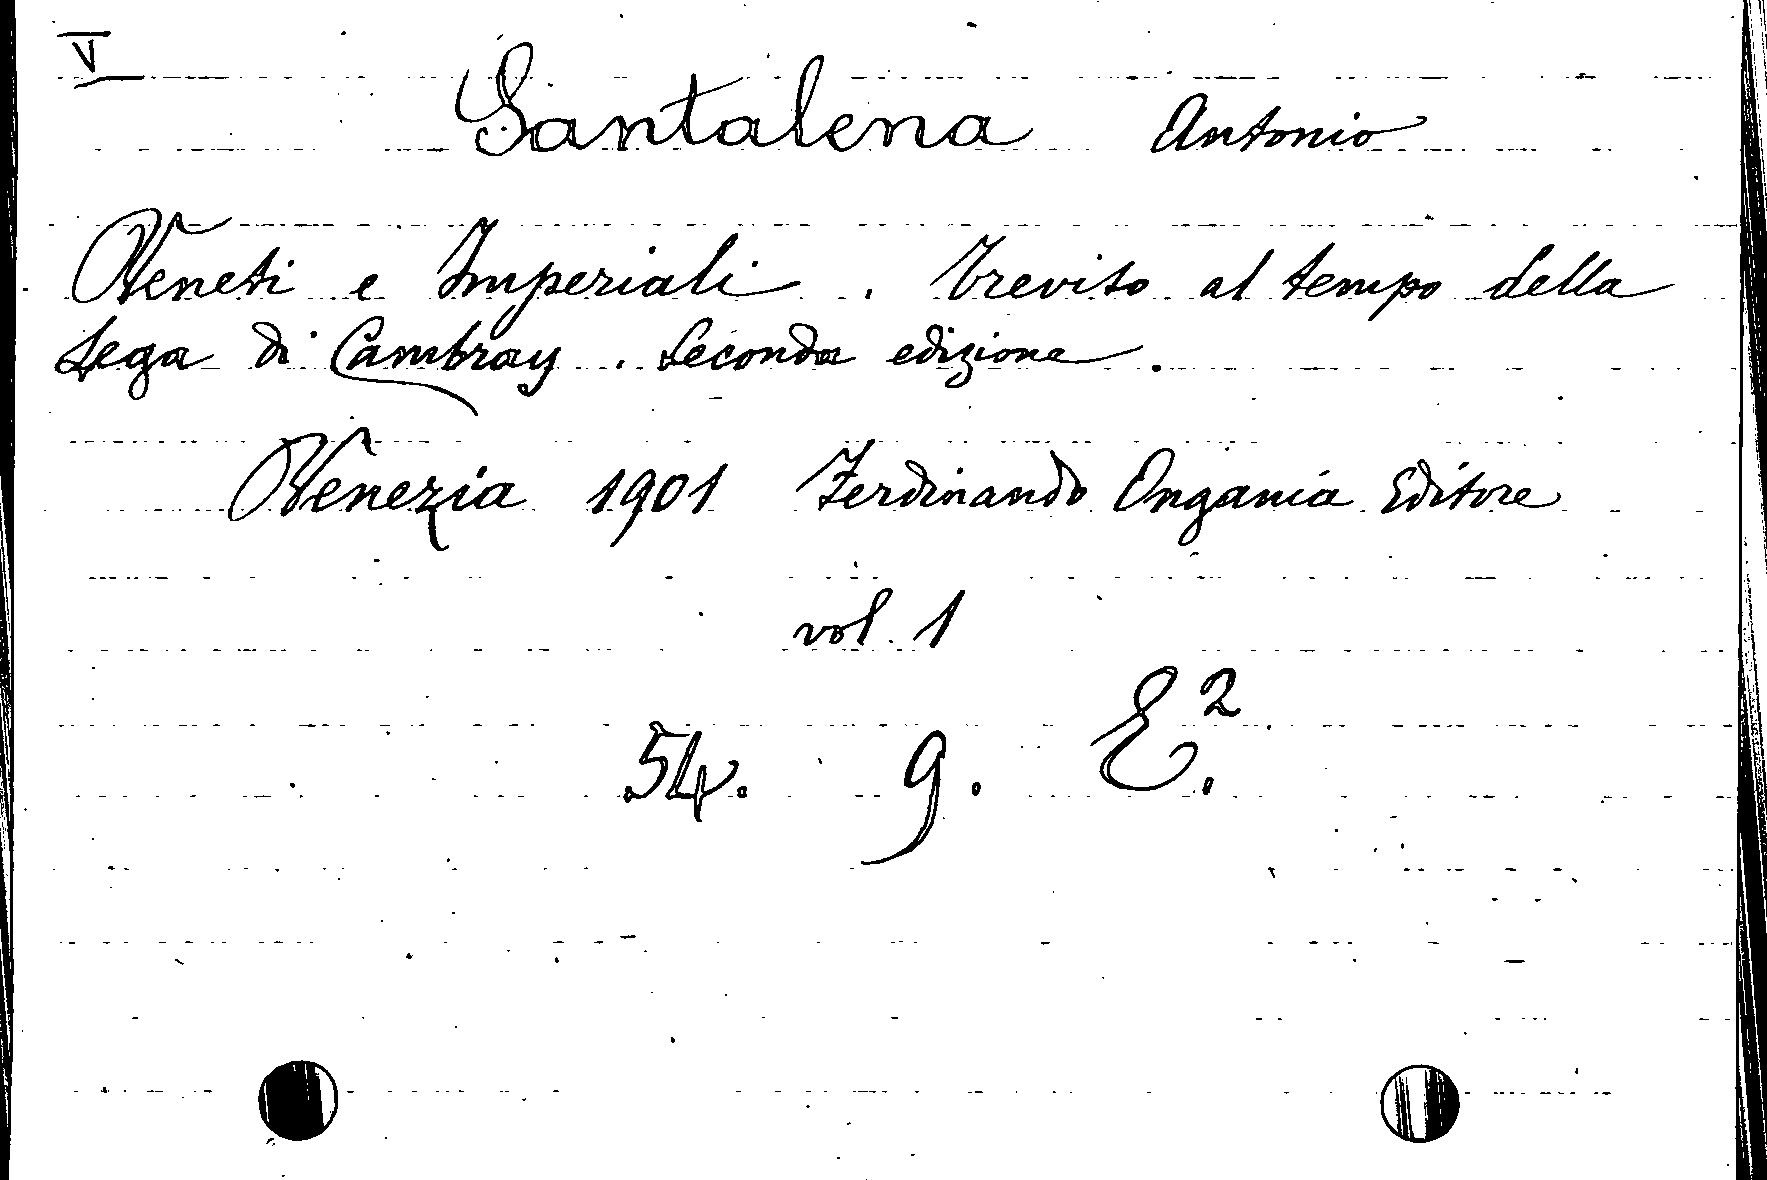 V
Santalena Antonio
Veneti e Imperiali. Treviso al tempo della
Lega di Cambray. Seconda edizione.
Venezia 1901 Ferdinando Ongania Editore
vol. 1
54. 9. E².